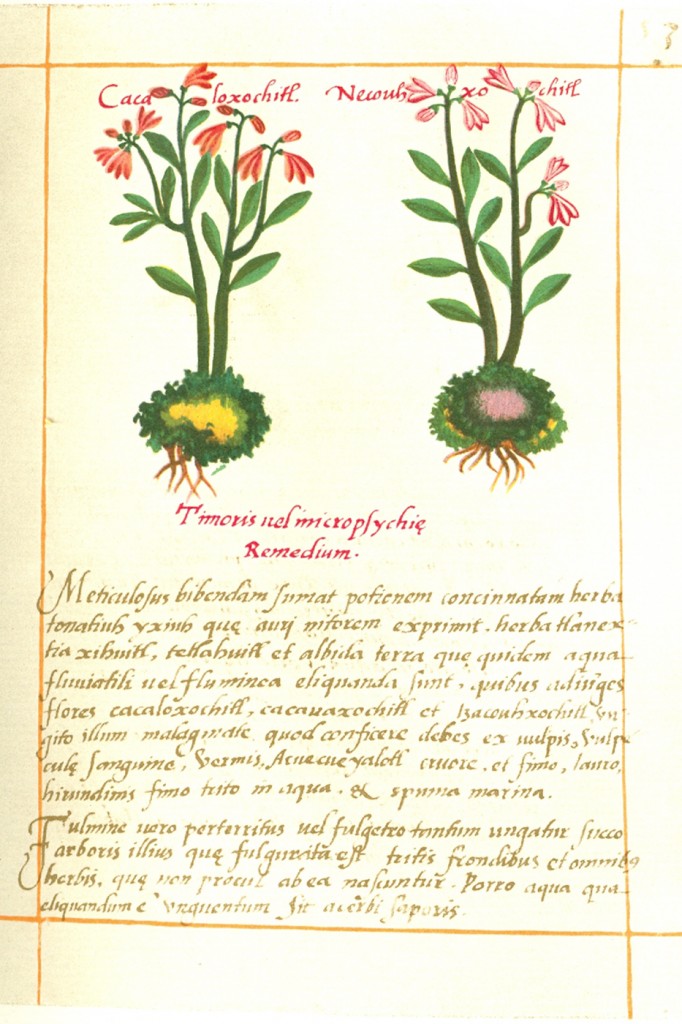 Cacaloxochitl. Necouhxochitl
Timoris uel micropsychię
Remedium.
Meticulosus bibendam sumat potionem concinnatam herba
tonatiuh yxiuh quę aurj nitorem exprimit. herba tlanex-
tia xihuitl, tetlahuitl et albida terra quę quidem aqua
fluuiatili uel fluminea eliquanda sunt, quibus adiũges
flores cacaloxochitl, cacauaxochitl et Izacouhxochitl, vn-
gito illum malagmate quod conficere debes ex uulpis, vulpe-
culę sanguine, vermis, Acuecueyalotl cruore, et fimo, lauro,
hirundinis fimo trito in aqua. & spuma marina.
Fulmine uero perterritus uel fulgetro tantum ungatur succo
arboris illius quę fulgurita est tritis frondibus et omnibꝫ
herbis, quę non procul ab ea nascuntur. Porro aqua qua
eliquandum ē vnguentum sit acerbi saporis.